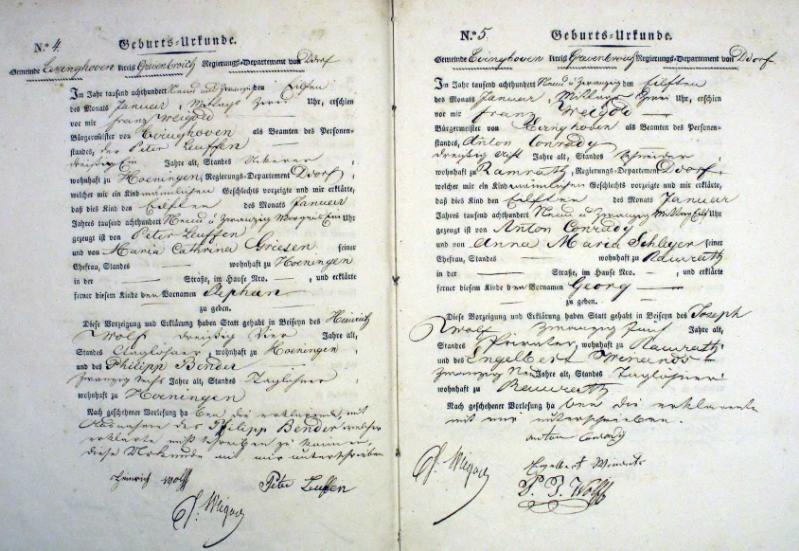 N.° 4. Geburts-Urkunde.
Gemeinde Evinghoven Kreis Grevenbroich Regierungs-Departement von Ddorf
Im Jahr tausend achthundert Neun u Zwanzig den Eilften
des Monats Januar, Mittags Zwei Uhr, erschien
vor mir Franz Weigold
Bürgermeister von Evinghoven als Beamten des Personen-
standes, der Peter Leuffen
dreißig Ein Jahre alt, Standes Ackerer
wohnhaft zu Hoeningen, Regierungs-Departement Ddorf,
welcher mir ein Kind männlichen Geschlechts vorzeigte und mir erklärte,
daß dies Kind den Eilften des Monats Januar
Jahres tausend achthundert Neun u Zwanzig Morgens Ein Uhr
gezeugt ist von Peter Leuffen
und von Maria Cathrina Griesen seiner
Ehefrau, Standes wohnhaft zu Hoeningen
in der Straße, im Hause Nro. , und erklärte
ferner diesem Kinde den Vornamen Stephan
zu geben.
Diese Vorzeigung und Erklärung haben Statt gehabt in Beiseyn des Heinrich
Wolf dreißig vier Jahre alt,
Standes Taglöhner, wohnhaft zu Hoeningen
und des Philipp Bender
Zwanzig sechs Jahre alt, Standes Taglöhner,
wohnhaft zu Hoeningen
Nach geschehener Vorlesung haben die erklärende, mit
Ausnahme des Philipp Bender welcher
erklärte nicht schreiben zu können,
diese Urkunde mit mir unterschrieben
Heinrich Wolff Peter Leuffen
N.° 5. Geburts-Urkunde.
Gemeinde Evinghoven Kreis Grevenbroich Regierungs-Departement von Ddorf
Im Jahr tausend achthundert Neun u Zwanzig den Eilften
des Monats Januar, Mittags Zwei Uhr, erschien
vor mir Franz Weigold
Bürgermeister von Evinghoven als Beamten des Personen-
standes, Anton Conrady
dreißig Jahre alt, Standes
wohnhaft zu Ramrath, Regierungs-Departement Ddorf
welcher mir ein Kind männlichen Geschlechts vorzeigte und mir erklärte,
daß dies Kind den Eilften des Monats Januar
Jahres tausend achthundert Neun u Zwanzig Uhr
gezeugt ist von Anton Conrady
und von Anna Maria Schleyer seiner
Ehefrau, Standes wohnhaft zu Ramrath
in der Straße, im Hause Nro. , und erklärte
ferner diesem Kinde den Vornamen Georg
zu geben.
Diese Vorzeigung und Erklärung haben Statt gehabt in Beiseyn des Joseph
Wolf Zwanzig fünf Jahre alt,
Standes , wohnhaft zu Ramrath
und des Engelbert
Zwanzig Jahre alt, Standes Taglöhner
wohnhaft zu Ramrath
Nach geschehener Vorlesung haben die erklärende
mit mir unterschrieben.
Anton Conrady
Engelbert
P. J. Wolff